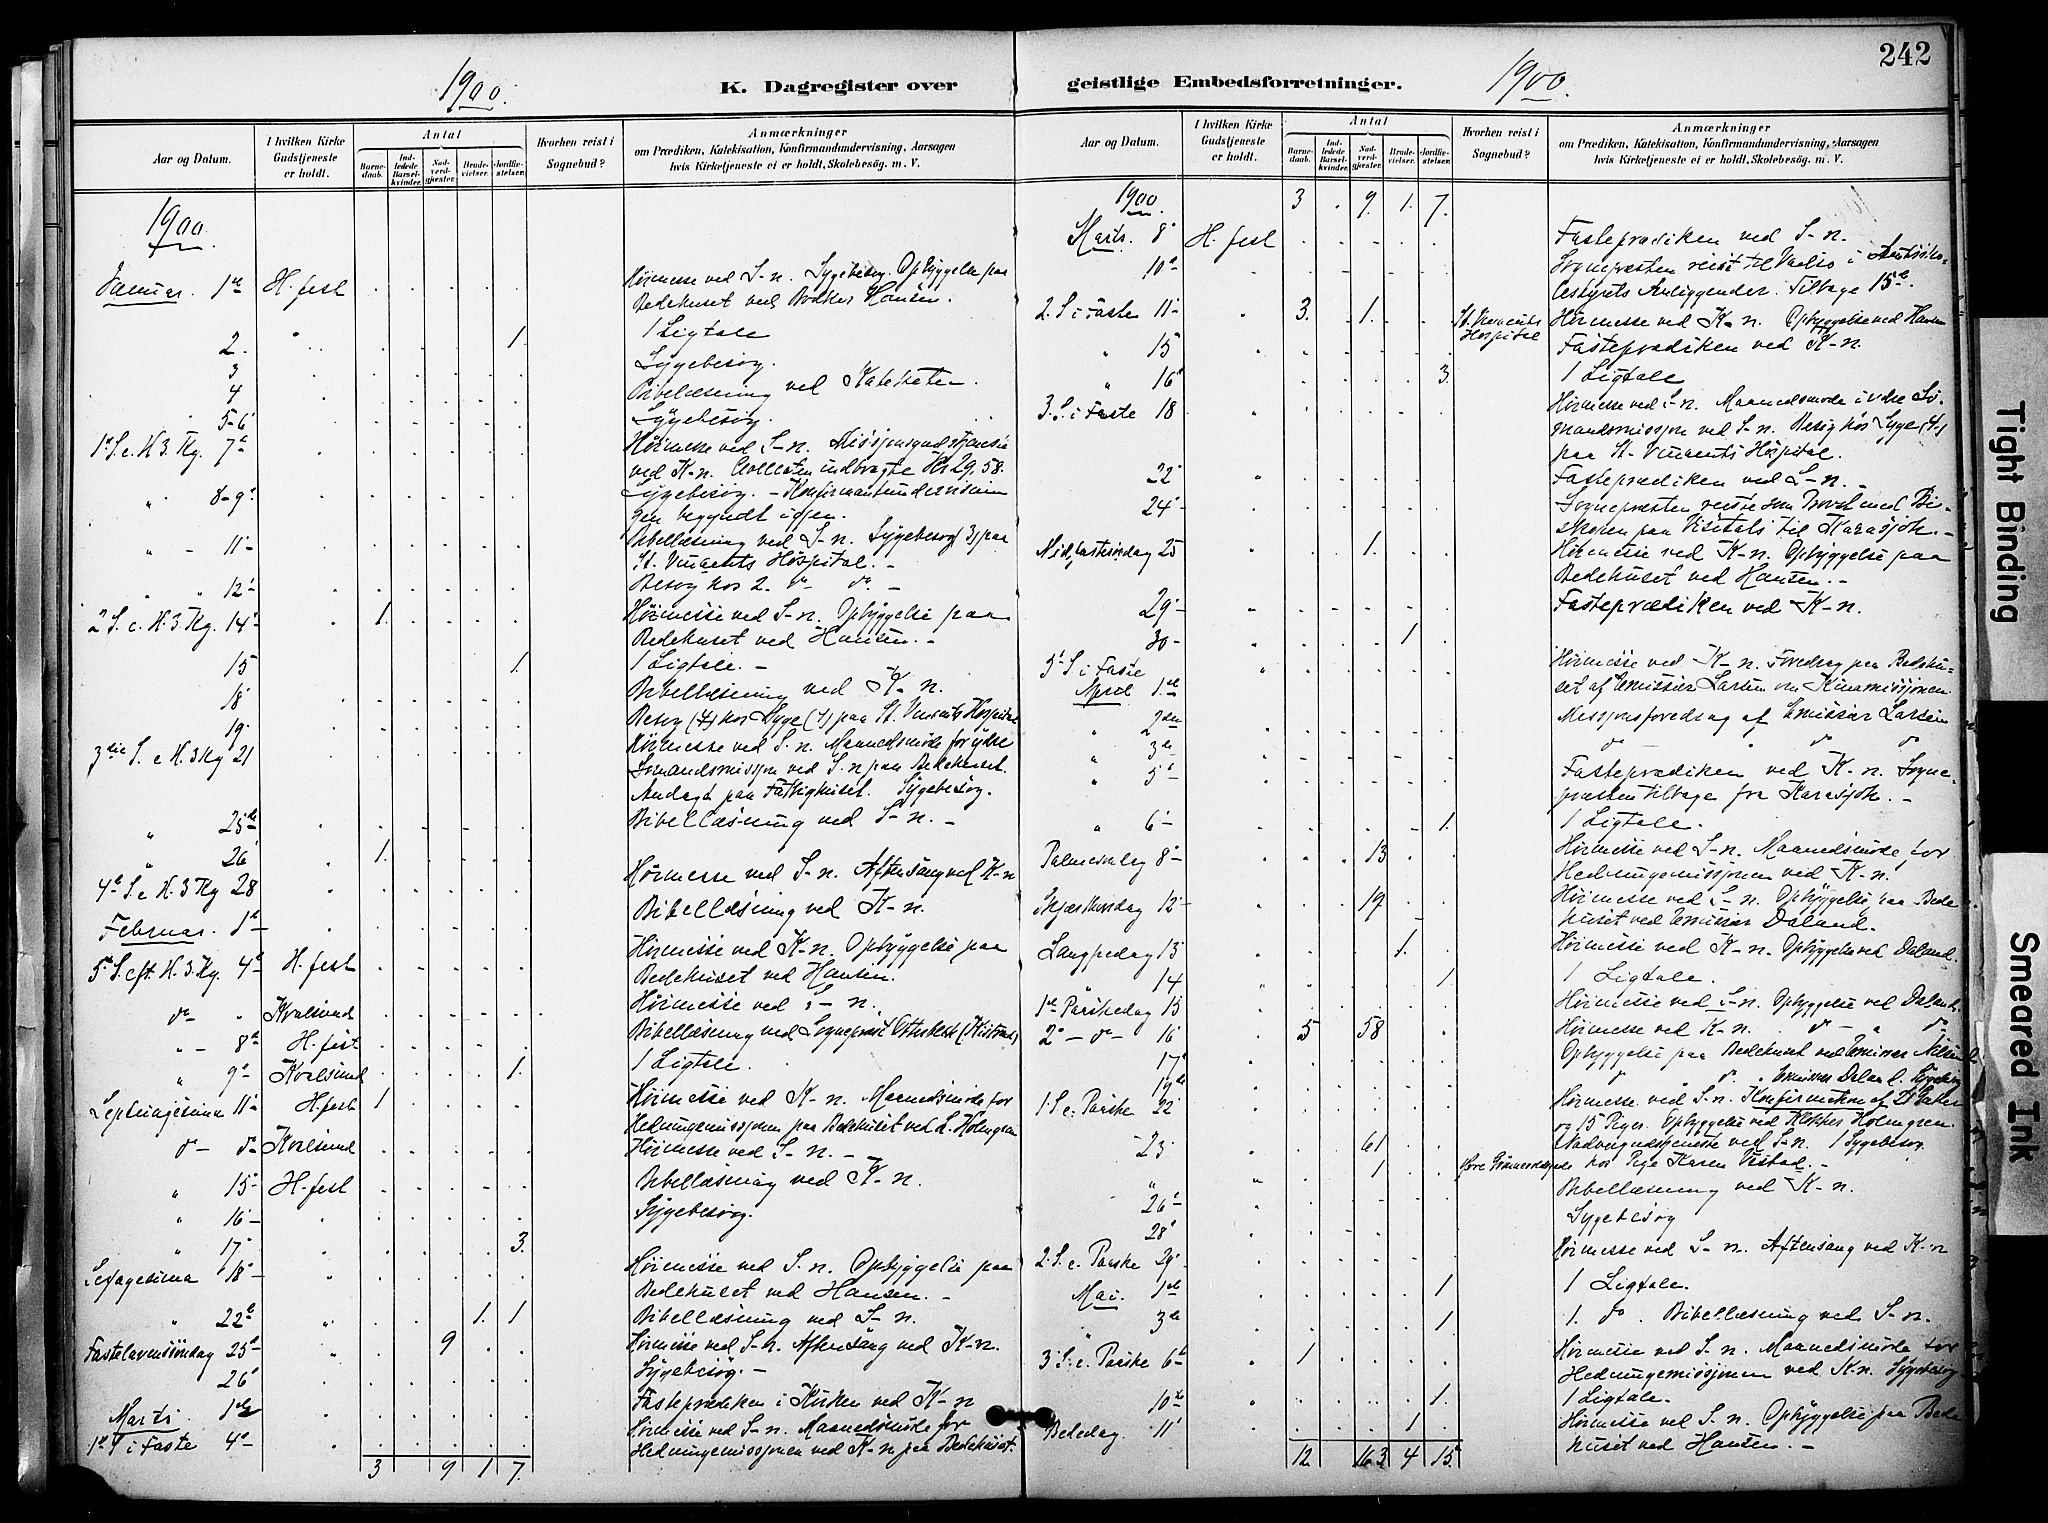 242
1900.
K. Dagregister over
geistlige Embedsforretninger.
1900.
Aar og Datum.
I hvilken Kirke Gudstjeneste er holdt.
Antal
Barnedaab.
Indledede Barselkvinder.
Nadverdgjæster.
Brudevielser.
Jordfæstelser.
Hvorhen reist i Sognebud?
Anmærkninger
om Prædiken, Katekisation, Konfirmandundervisning, Aarsagen
hvis Kirketjeneste ei er holdt, Skolebesøg. m. V.
1900.
Januar 1ste H. fest Høimesse ved S-n. Sygebesøg. Opbyggelse paa
Bedehuset ved Hansen.
2. 1. 1 Ligtale
3 Sygebesøg.
4 Bibellæsning ved Kateketen.
5-6 Sygebesøg.
1ste S. e. H. 3 Kg. 7de Høimesse ved S-n. Missionsgudstjeneste
ved K-n. Collecten indbragte Kr 29.58.
" 8-9 Sygebesøg. - Konfirmantundervisnin
gen begyndt igjen.
" - 11 Bibellæsning ved S-n. Sygebesøg (3) paa
St. Vincents Hospital. -
" " 12 Besøg hos 2. do do -
2 S. e. H. 3 Kg. 14 1. Høimesse ved S-n. Opbyggelse paa
Bedehuset ved Hansen. -
15 1. 1 Ligtale. -
18 Bibellæsning ved K-n.
19 Besøg (4) hos Syge (4) paa St. Vincents Hospital
3die S. e H. 3 Kg 21 Høimesse ved S-n. Maanedsmøde for ydre
Sømandsmission ved S-n paa Bedehuset.
Andagt paa Fattighuset. Sygebesøg.
" 25de Bibellæsning ved S-n. -
" 26 1.
4de S. e H. 3 Kg 28 Høimesse ved S-n. Aftensang ved K-n
Februar. 1ste Bibellæsning ved K-n.
5te S. eft. H. 3. Kg. 4de H. fest Høimesse ved K-n. Opbyggelse paa
Bedehuset ved Hansen.
do - " Kvalsund Høimesse ved S-n.
" - 8de H. fest Bibellæsning ved Sogneprest
" 9de Kvalsund 1. 1 Ligtale.
Septuagesima 11 H. fest 1 Høimesse ved K-n. Maanedsmøde for
Hedningemissjonen paa Bedehuset ved L. Holmgren
do - do Kvalsund Høimesse ved S-n. -
" 15 H. fest Bibellæsning ved K-n.
" 16 Sygebesøg.
" 17 3.
Sexagesima 18 Høimesse ved S-n. Opbyggelse paa
Bedehuset ved Hansen. -
" 22de 1. 1 Bibellæsning ved S-n.
Fastelavenssøndag 25 9 Høimesse ved S-n. Aftensang ved K-n.
26 Sygebesøg. -
Marts 1ste Fasteprædiken i Kirken ved K-n
1ste S i Faste 4de Høimesse ved S-n. Maanedsmøde for
Hedningemissjonen ved K-n paa Bedehuset.
3 9 1 7.
Aar og Datum.
I hvilken Kirke Gudstjeneste er holdt.
Antal
Barnedaab.
Indledede Barselkvinder.
Nadverdgjæster.
Brudevielser.
Jordfæstelser.
Hvorhen reist i Sognebud?
Anmærkninger
om Prædiken, Katekisation, Konfirmandundervisning, Aarsagen
hvis Kirketjeneste ei er holdt, Skolebesøg. m. V.
1900. 3 . 9. 1. 7.
Marts. 8 H. fest Fasteprædiken ved S-n.
10de Sognepræsten reist til Vadsø i
Anliggender. Tilbage 15de.
2. S. i Faste 11 3. 1. St. Vincents Hospital Høimesse ved K-n. Opbyggelse ved Hansen
" 15 Fasteprædiken ved K-n.
" 16 3. 1 Ligtale
3. S. i Faste 18 Høimesse ved S-n. Maanedsmøde i ydre Sø-
mandsmission ved S-n. Besøg hos Syge (4)
paa St. Vincents Hospital.
22 Fasteprædiken ved S-n. -
24 Sognepræsten reiste som Provst med Bi-
skopen paa Visitats til Karasjok. -
Midfastesøndag 25 1. Høimesse ved K-n. Opbyggelse paa
Bedehuset ved Hansen. -
29 Fasteprædiken ved K-n.
30 1
5te S i Faste
April 1ste Høimesse ved K-n. Foredrag paa Bedehu-
set af Emissær Larsen om Kinamissjonen
" 2den Missjonsforedrag af Emissær Larsen
" 3die do " do do
" 5 Fasteprædiken ved K-n. Sogne-
præsten tilbage fra Karasjok. -
" 6 1. 1 Ligtale.
Palmesøndag 8 13 Høimesse ved S-n. Maanedsmøde for
Hedningemissjonen ved K-n.
Skjærthorsdag 12 19 Høimesse ved S-n. Opbyggelse paa Bede
huset ved Emissær Daland.
Langfredag 13 1. Høimesse ved K-n. Opbyggelse ved Daland.
14 1 1 Ligtale.
1ste Paaskedag 15 Høimesse ved S-n. Opbyggelse ved Daland.
2 - do - 16 5 58 Høimesse ved K-n. do - " do
17 Opbyggelse paa Bedehuset ved Emissær
19de do " do " Emissær Daland. Sygebesøg
1. S. e. Paaske 22 Høimesse ved S-n. Konfirmation af 21 Gutter
og 15 Piger. Opbyggelse ved Klokker Holmgren.
23 61 Nadvergudstjeneste ved S-n. 1 Sygebesøg
1 hos Pige Karen
" 26 Bibellæsning ved K-n.
28 Sygebesøg
2. S. e. Paaske 29 Høimesse ved S-n. Aftensang ved K-n
Mai. 1ste 1 1 Ligtale.
" 3die 1 1. do. Bibellæsning ved S-n.
3 S. e. Paaske 6 1 Høimesse ved S-n. Maanedsmøde for
Hedningemissjonen ved K-n. Sygebesøg
10de 1. 1 Ligtale.
Bededag 11 1 Høimesse ved S-n. Opbyggelse paa Bede
huset ved Hansen. -
12. 163 4 15.
Tight Binding
Smeared Ink